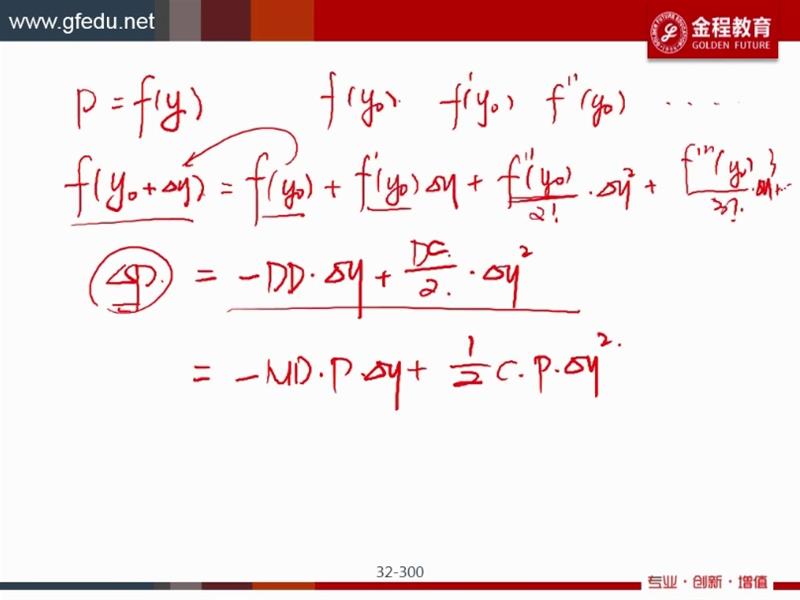 www.gfedu.net
金程教育
GOLDEN FUTURE
P = f(y) f(y₀). f'(y₀) f''(y₀) ....
f(y₀+Δy) = f(y₀) + f'(y₀)Δy + f''(y₀)/2! · Δy² + f'''(y₀)/3! · Δy³+..
ΔP. = -DD·Δy + DC/2. · Δy²
= -MD·P·Δy + 1/2 C·P·Δy².
32-300
专业·创新·增值